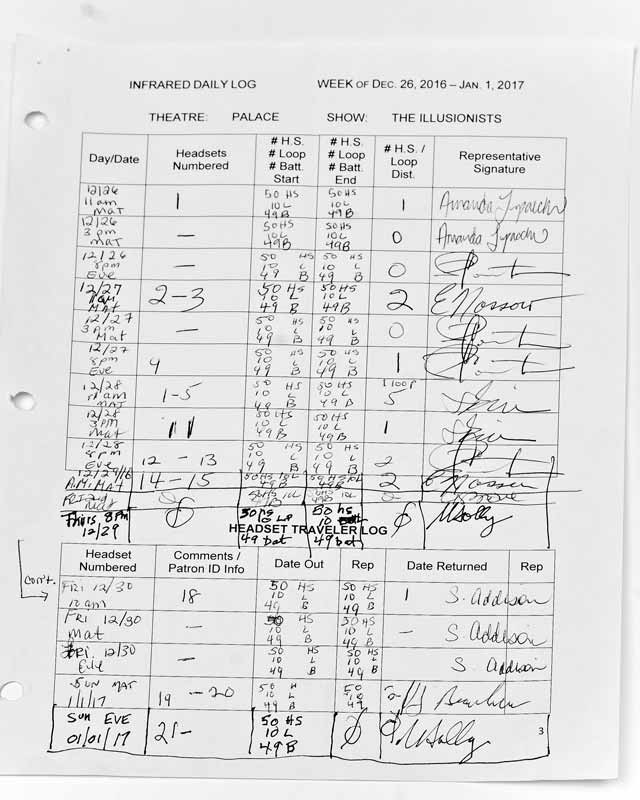 INFRARED DAILY LOG WEEK OF DEC. 26, 2016 – JAN. 1, 2017
THEATRE: PALACE SHOW: THE ILLUSIONISTS
Day/Date Headsets Numbered # H.S. # Loop # Batt. Start # H.S. # Loop # Batt. End # H.S. / Loop Dist. Representative Signature
12/26 11am MAT 1 50 HS 10 L 49 B 50 HS 10 L 49 B 1 Amanda
12/26 3pm mat — 50 HS 10 L 49 B 50 HS 10 L 49 B 0 Amanda
12/26 8pm Eve — 50 HS 10 L 49 B 50 HS 10 L 49 B 0
12/27 MAT 2-3 50 HS 10 L 49 B 50 HS 10 L 49 B 2 E Nossow
12/27 3pm Mat — 50 HS 10 L 49 B 50 HS 10 L 49 B 0
12/27 8pm Eve 4 50 HS 10 L 49 B 50 HS 10 L 49 B 1
12/28 11am MAT 1-5 50 HS 10 L 49 B 50 HS 10 L 49 B 1 loop 5
12/28 3pm Mat 11 50 HS 10 L 49 B 50 HS 10 L 49 B 1
12/28 8pm Eve 12 - 13 50 HS 10 L 49 B 50 HS 10 L 49 B 2
12/29/16 A.M. MAT 14-15 50 HS 10L 49B 50 HS 10L 49B 2 E Nossow
Thurs 8pm 12/29 ∅ 50 hs 10 LP 49 bat 50 hs 10 49 bat ∅ MSolly
HEADSET TRAVELER LOG
Headset Numbered Comments / Patron ID Info Date Out Rep Date Returned Rep
cont.
FRI 12/30 10am 18 50 HS 10 L 49 B 50 HS 10 L 49 B 1 S. Addison
FRI 12/30 Mat — 50 HS 10 L 49 B 50 HS 10 L 49 B — S. Addison
FRI. 12/30 Eve — 50 HS 10 L 49 B 50 HS 10 L 49 B S. Addison
SUN MAT 1/1/17 19 - 20 50 H 10 L 49 B 50 10 49 2
SUN EVE 01/01/17 21- 50 HS 10 L 49 B ∅ MSolly
3